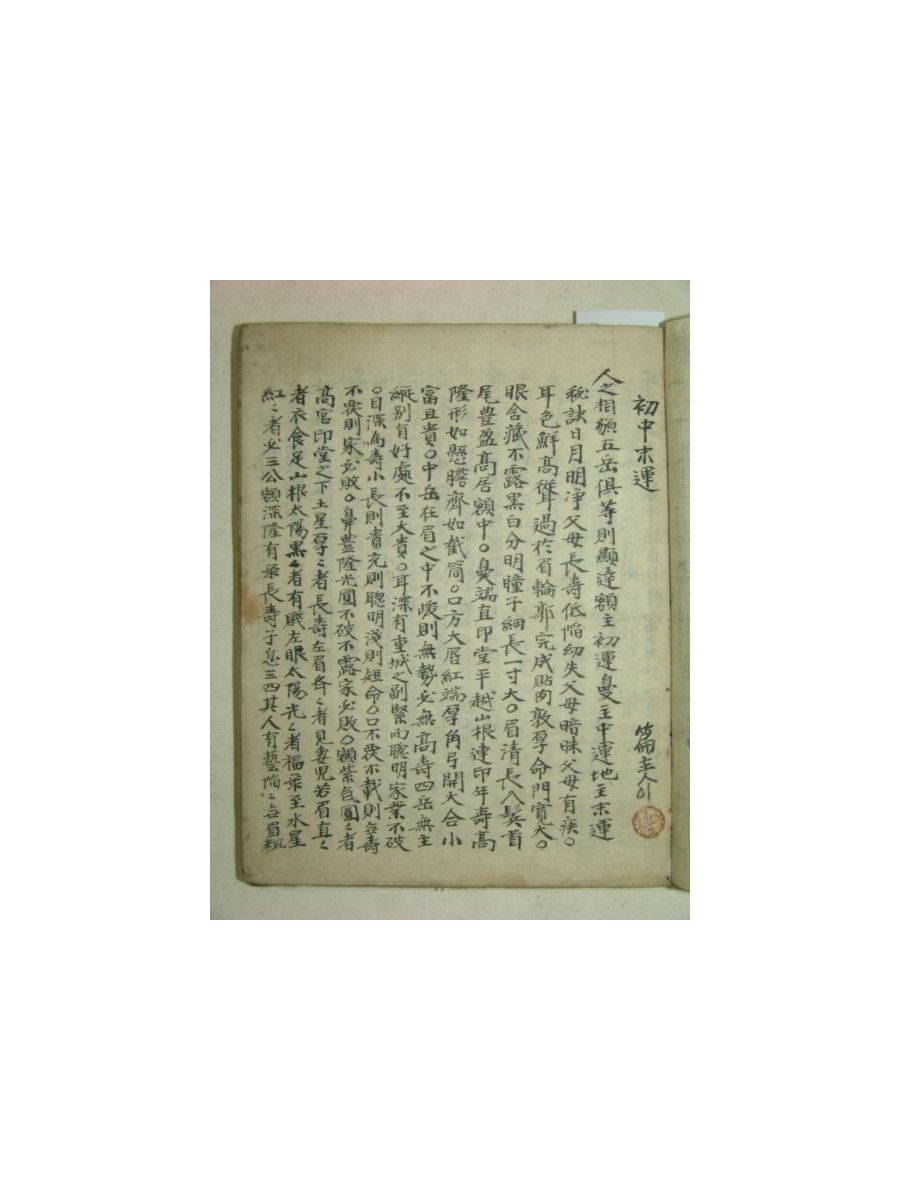 初中末運 篇主人
人之相貌五岳俱等則顯達額主初運鼻主中運地主末運
秘訣日月明净父母長壽低陷幼失父母暗昧父母有疾○
耳色鮮高聳過於眉輪郭完成貼肉敦厚命門寬大○
眼含藏不露黑白分明瞳子細長一寸大○眉清長入髮首
尾豊盈高居額中○鼻端直印堂平越山根連印年壽高
隆形如懸膽齊如截筒○口方大唇紅端厚角弓開大合小
富且貴○中岳在眉之中不峻則無勢必無高壽四岳無主
縱別有好處不至大貴○耳深有重城之副緊而聰明家業不破
○目深為壽小長則貴光則聰明淺則短命○口不喪不載則無壽
不喪則家必敗○鼻豊隆光圓不破不露家必敗○額紫氣圓〻者
高官印堂之下土星厚〻者長壽左眉各〻者見妻児若眉直〻
者衣食足山根太陽黑〻者有賤左眼太陽光〻者福彔至水星
紅〻者必三公額深隆有彔長壽子息三四其人有藝陷〻無眉粗